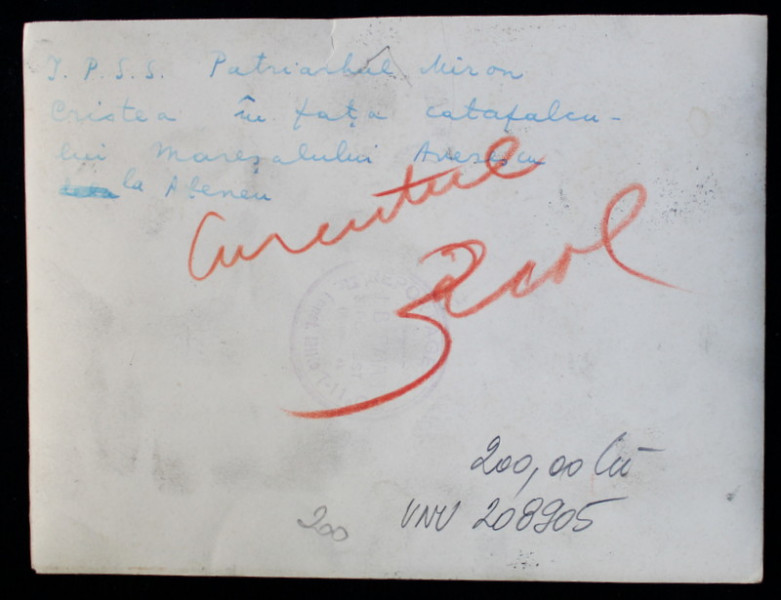 I. P. S. S. Patriarhul Miron
Cristea în fața catafalcu-
lui Mareșalului Averescu
la Ateneu
Curentul
2 col
200,00 lei
VNU 208905
200